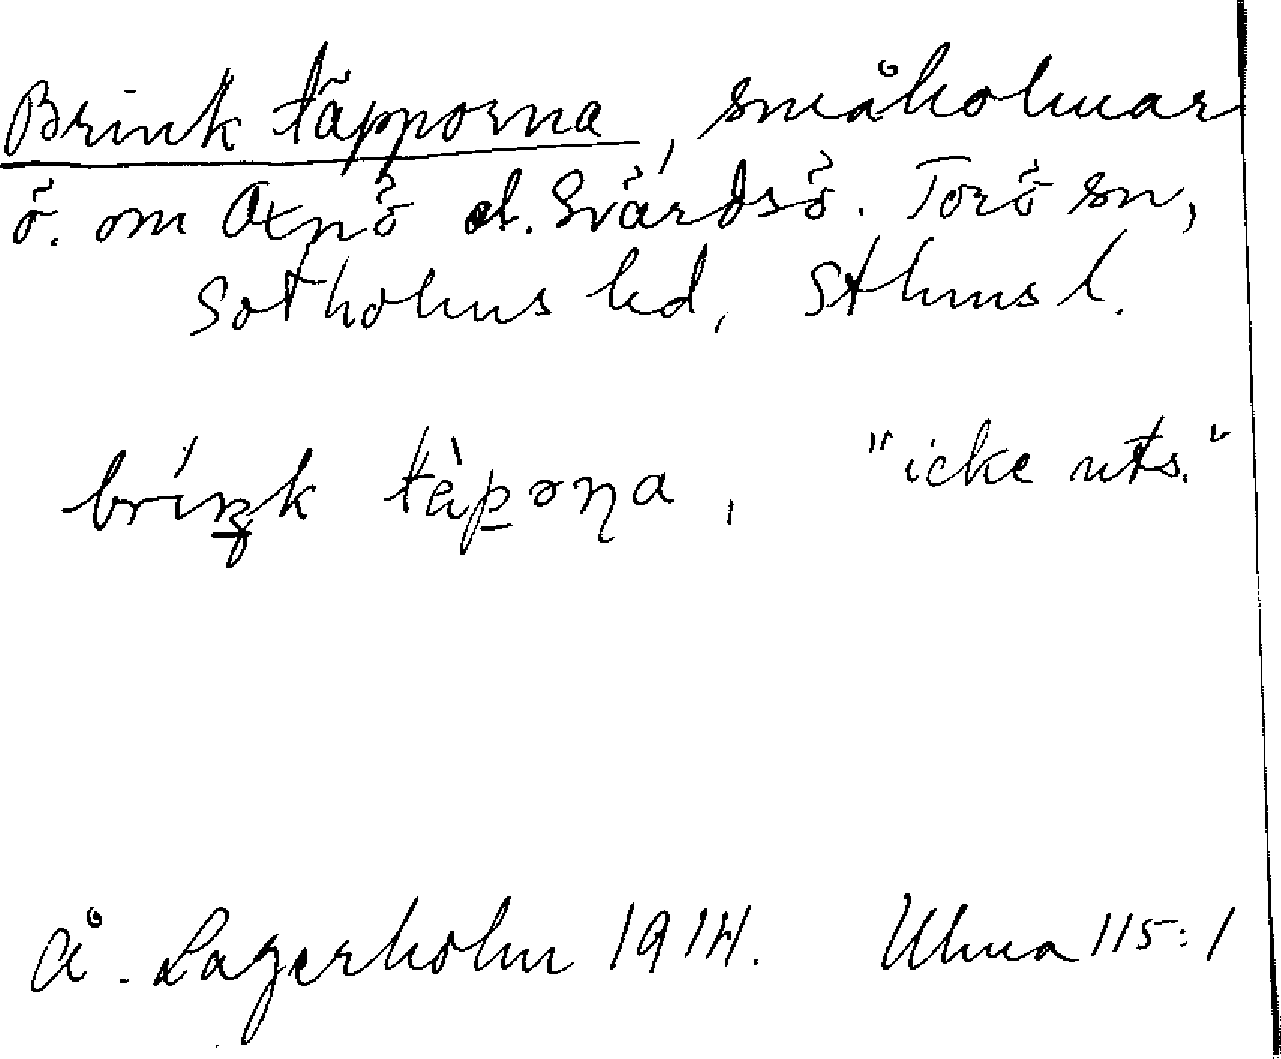 Brink täpporna, småholmar
ö. om Oxnö el. Svärdsö. Torö sn,
Sotholms hd, Sthms l.
bríŋk tὲpoɳa, "icke uts."
Å. Lagerholm 1914. Ulma 115:1